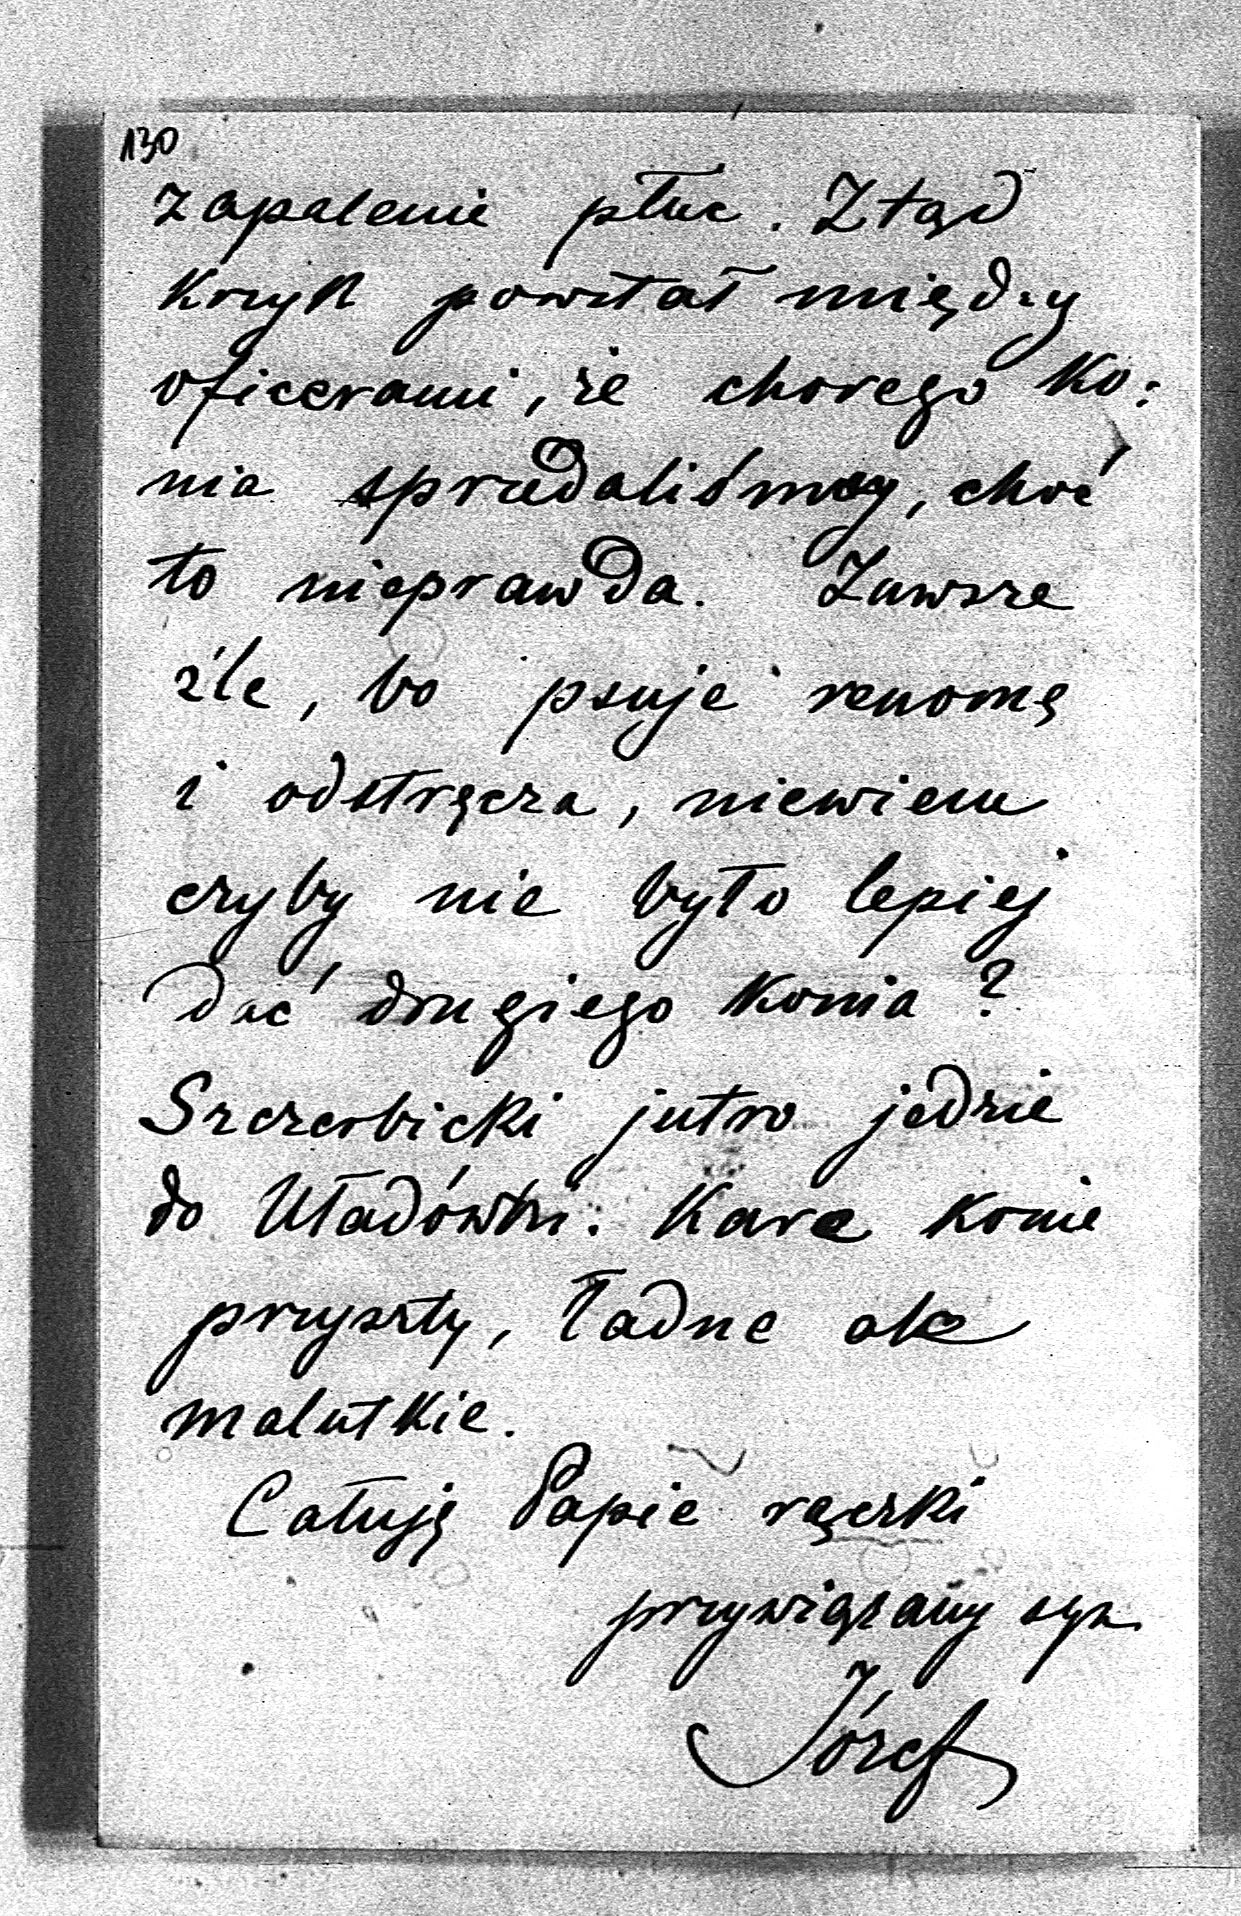 130
zapalenie płuc. Ztąd
krzyk powstał między
oficerami, że chorego ko:
nia sprzedaliśmy, choć
to nieprawda. Zawsze
źle, bo psuje renomę
i odstręcza, niewiem
czyby nie było lepiej
dać drugiego konia?
Szczerbicki jutro jedzie
do Uładówki. Kare konie
przyszły, ładne ale
malutkie.
Całuję Papie rączki
przywiązany syn
Józef